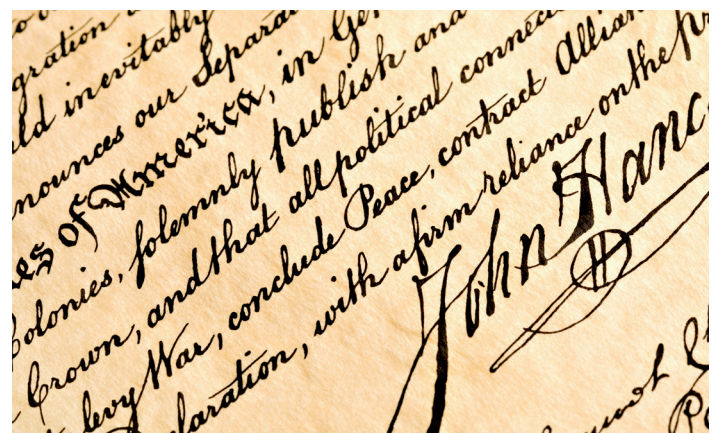 gration
ld inevitably
nounces our Separa
es of America, in Gen
Colonies, solemnly publish and
Crown, and that all political connec
levy War, conclude Peace, contract Allian
laration, with a firm reliance on the pr
John Hanc